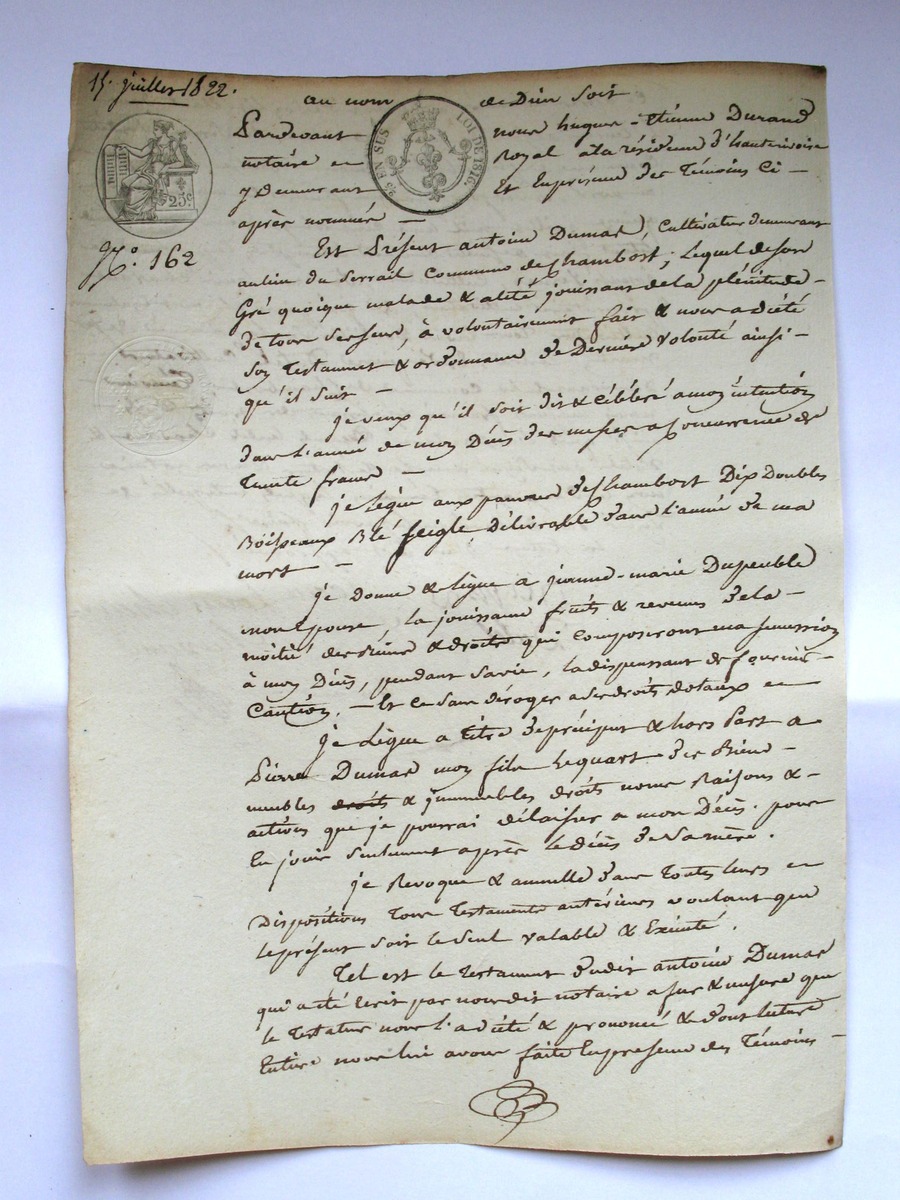 15. juillet 1822.
au nom de Dieu soit
Pardevant nous hugue-Etienne Durand
notaire Royal a la résidence d'hauterivoire
y Demeurant Et En présence des Témoins Ci-
après nommés —
25 EN SUS
LOI DE 1816.
25c
No. 162
Est Présent antoine Dumas, Cultivateur Demeurant
au lieu du Serrail Commune de Chambost; Lequel de son
Gré quoique malade & alité jouissant de la plénitude
De tous ses sens, à volontairement fait & nous a dicté
son Testament & ordonnance De Derniere volonté ainsi-
qu'il suit —
je veux qu'il soit dit & célébré a mon intention
dans l'année de mon Décès des messes a Concurrence de
Trente francs —
je Lègue aux pauvres de Chambost Dix Doubles
Boisseaux Blé seigle Délivrable dans l'année de ma
mort —
je Donne & Lègue a jeanne-marie Dupeuble
mon Epouse la jouissance fruits & revenus de la —
moitié des biens & droits qui composeront ma succession
à mon Décès, pendant sa vie, la dispensant de fournir
Caution, — Et ce sans déroger a ses droits dotaux —
je Lègue a titre de préciput & hors Part a
Pierre Dumas mon fils Le quart des Biens —
meubles droits & immeubles droits noms Raisons & —
actions que je pourrai délaisser a mon Décès. pour
En jouir seulement après le décès de sa mère.
je Revoque & annulle dans toutes leurs
Dispositions Tous Testaments antérieurs voulant que
le présent soit le seul valable & Exécuté.
Tel est le Testament dudit antoine Dumas
qui a été Ecrit par nous dit notaire a fur & mesure que
le Testateur nous l'a dicté & prononcé & dont lecture
Entiere nous lui avons faite En presence des Témoins —